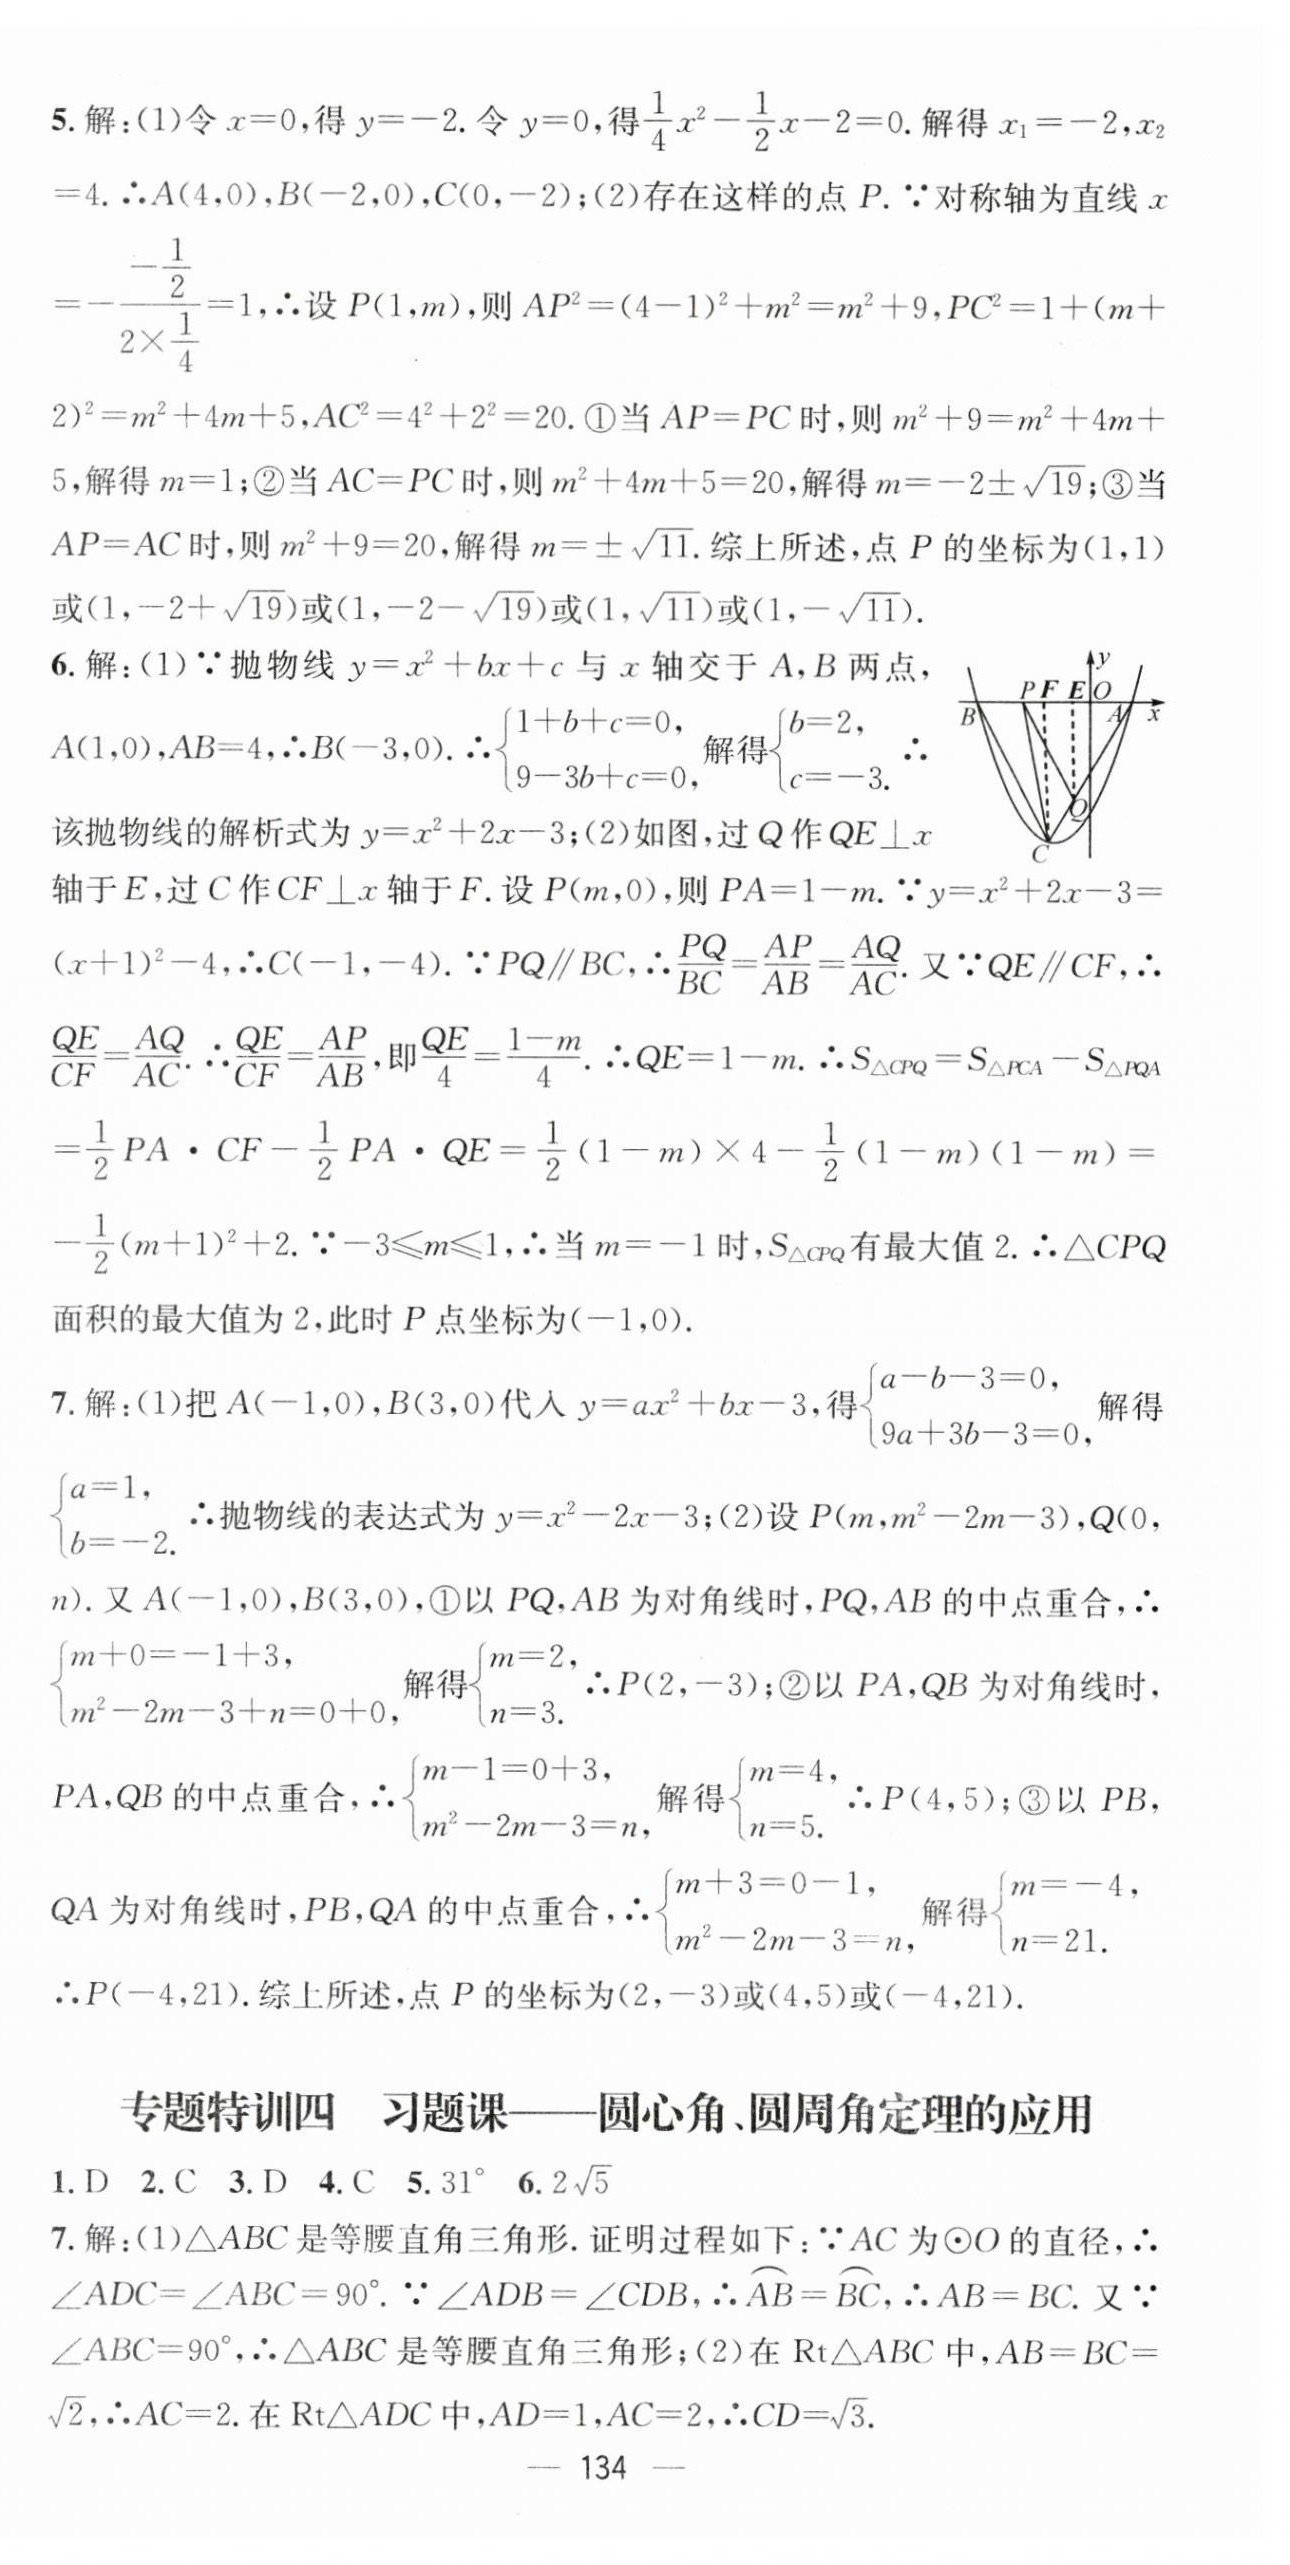 5. 解:(1)令 x=0,得 y=-2. 令 y=0,得\frac{1}{4}x²-\frac{1}{2}x-2=0. 解得 x₁=-2,x₂
=4. ∴A(4,0),B(-2,0),C(0,-2);(2)存在这样的点 P. ∵对称轴为直线 x
=-\frac{-\frac{1}{2}}{2×\frac{1}{4}}=1,∴设 P(1,m),则 AP²=(4-1)²+m²=m²+9,PC²=1+(m+
2)²=m²+4m+5,AC²=4²+2²=20. ①当 AP=PC 时,则 m²+9=m²+4m+
5,解得 m=1;②当 AC=PC 时,则 m²+4m+5=20,解得 m=-2±√19;③当
AP=AC 时,则 m²+9=20,解得 m=±√11. 综上所述,点 P 的坐标为(1,1)
或(1,-2+√19)或(1,-2-√19)或(1,√11)或(1,-√11).
6. 解:(1)∵抛物线 y=x²+bx+c 与 x 轴交于 A,B 两点,
A(1,0),AB=4,∴B(-3,0). ∴{1+b+c=0, 9-3b+c=0, 解得{b=2, c=-3. ∴
该抛物线的解析式为 y=x²+2x-3;(2)如图,过 Q 作 QE⊥x
y
P F E O
B A x
Q
C
轴于 E,过 C 作 CF⊥x 轴于 F. 设 P(m,0),则 PA=1-m. ∵y=x²+2x-3=
(x+1)²-4,∴C(-1,-4). ∵PQ∥BC,∴\frac{PQ}{BC}=\frac{AP}{AB}=\frac{AQ}{AC}. 又∵QE∥CF,∴
\frac{QE}{CF}=\frac{AQ}{AC}. ∴\frac{QE}{CF}=\frac{AP}{AB},即\frac{QE}{4}=\frac{1-m}{4}. ∴QE=1-m. ∴S△CPQ=S△PCA-S△PQA
=\frac{1}{2}PA·CF-\frac{1}{2}PA·QE=\frac{1}{2}(1-m)×4-\frac{1}{2}(1-m)(1-m)=
-\frac{1}{2}(m+1)²+2. ∵-3≤m≤1,∴当 m=-1 时,S△CPQ有最大值 2. ∴△CPQ
面积的最大值为 2,此时 P 点坐标为(-1,0).
7. 解:(1)把 A(-1,0),B(3,0)代入 y=ax²+bx-3,得{a-b-3=0, 9a+3b-3=0, 解得
{a=1, b=-2. ∴抛物线的表达式为 y=x²-2x-3;(2)设 P(m,m²-2m-3),Q(0,
n). 又 A(-1,0),B(3,0),①以 PQ,AB 为对角线时,PQ,AB 的中点重合,∴
{m+0=-1+3, m²-2m-3+n=0+0, 解得{m=2, n=3. ∴P(2,-3);②以 PA,QB 为对角线时,
PA,QB 的中点重合,∴{m-1=0+3, m²-2m-3=n, 解得{m=4, n=5. ∴P(4,5);③以 PB,
QA 为对角线时,PB,QA 的中点重合,∴{m+3=0-1, m²-2m-3=n, 解得{m=-4, n=21.
∴P(-4,21). 综上所述,点 P 的坐标为(2,-3)或(4,5)或(-4,21).
专题特训四 习题课——圆心角、圆周角定理的应用
1. D 2. C 3. D 4. C 5. 31° 6. 2√5
7. 解:(1)△ABC 是等腰直角三角形. 证明过程如下:∵AC 为⊙O 的直径,∴
∠ADC=∠ABC=90°. ∵∠ADB=∠CDB,∴\overset{⌒}{AB}=\overset{⌒}{BC},∴AB=BC. 又∵
∠ABC=90°,∴△ABC 是等腰直角三角形;(2)在 Rt△ABC 中,AB=BC=
√2,∴AC=2. 在 Rt△ADC 中,AD=1,AC=2,∴CD=√3.
— 134 —